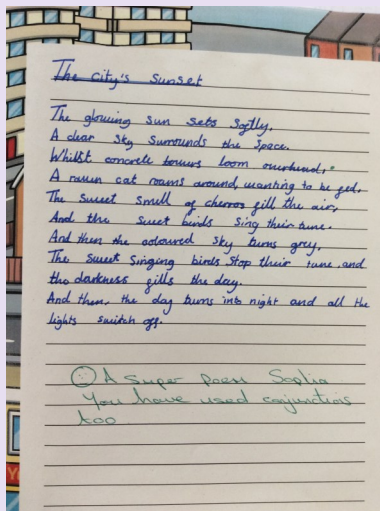 The City's Sunset
The glowing sun sets softly,
A clear sky surrounds the space.
Whilst concrete towers loom overhead,
A raven cat roams around, wanting to be fed.
The sweet smell of cherros fill the air,
And the sweet birds sing their tune.
And then the coloured sky turns grey,
The sweet singing birds stop their tune and
the darkness fills the day.
And then, the day turns into night and all the
lights switch off.
A super poem Sophia
You have used conjunctions
too